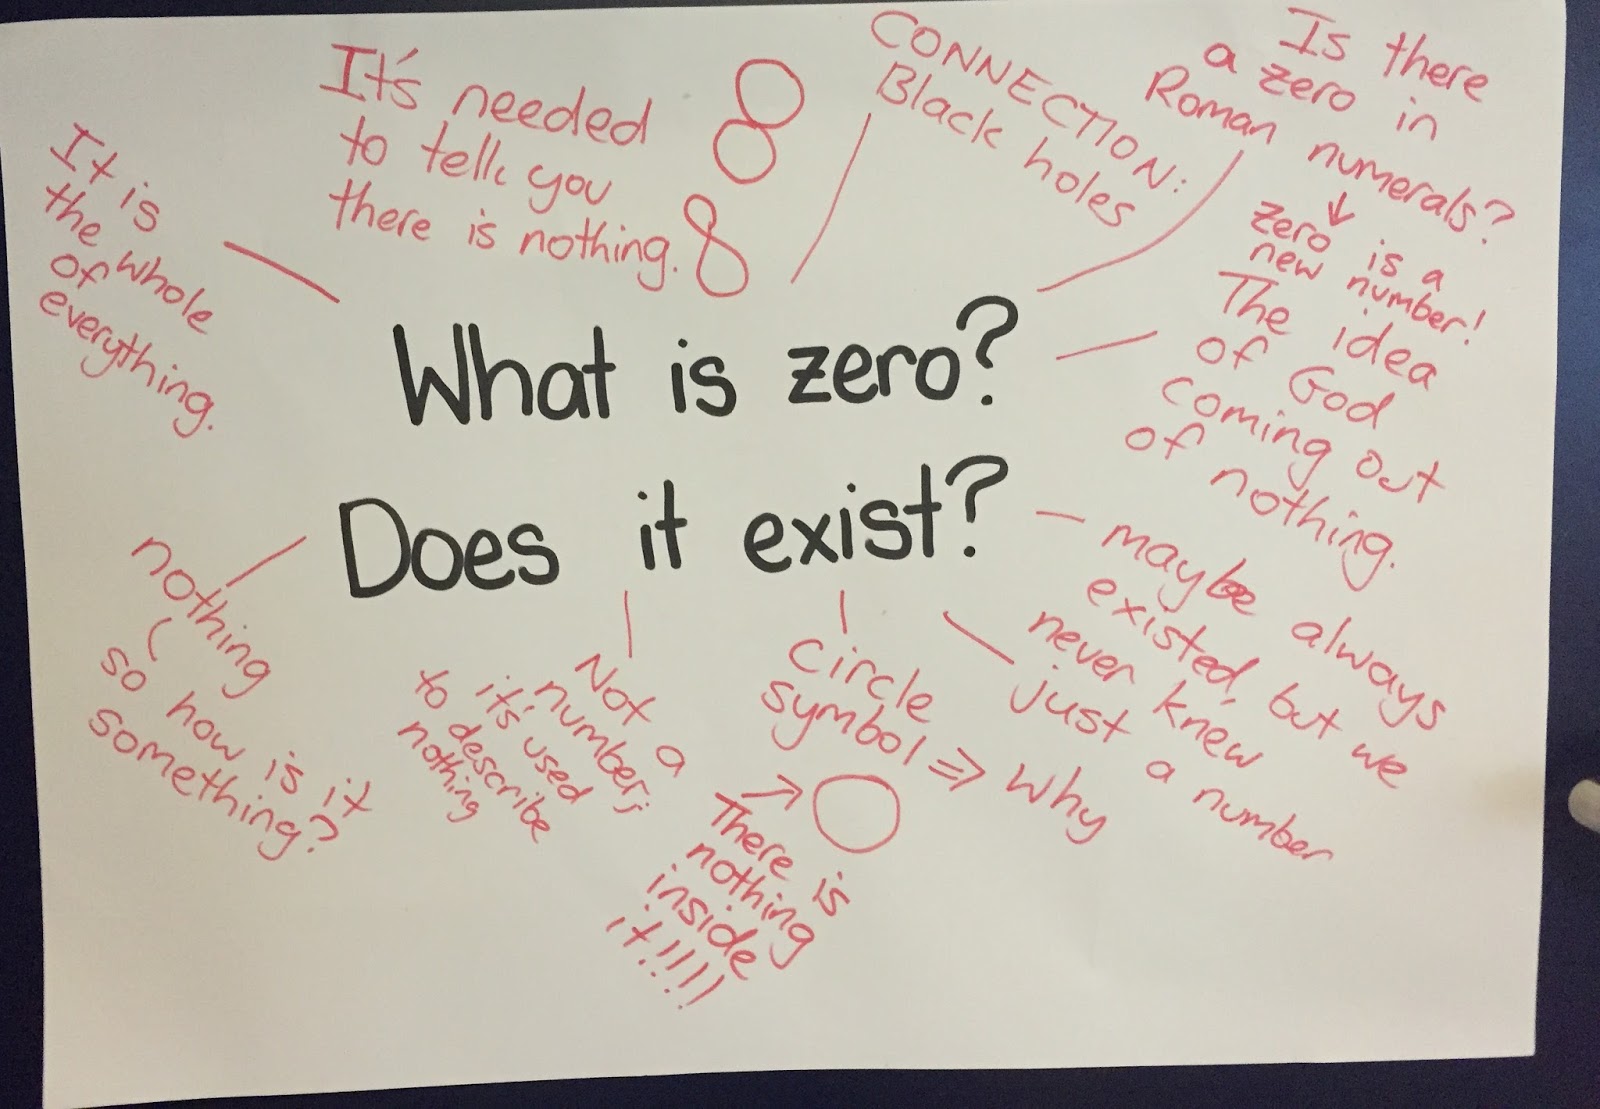 What is zero?
Does it exist?
It's needed
to tell you
there is nothing.
8
8
CONNECTION:
Black holes
Is there
a zero in
Roman numerals?
↓
zero is a
new number!
The idea
of God
coming out
of nothing.
maybe always
existed, but we
never knew
just a number
circle
symbol ⇒ why
→
There is
nothing
inside
it!!!!!
Not a
number,
it's used
to describe
nothing
nothing
so how is it
something?
It is
the whole
of
everything.